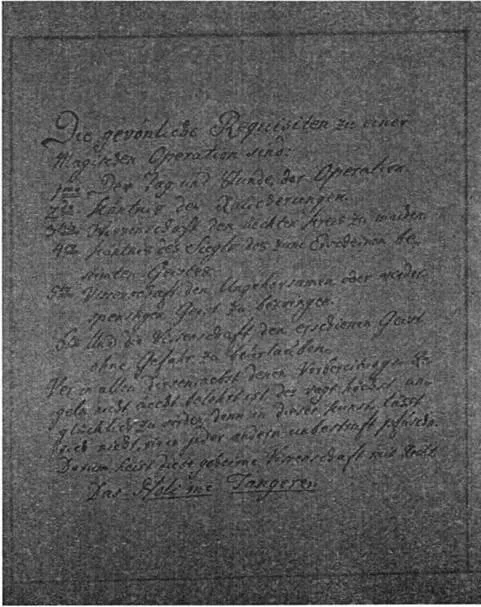 Die gevönliche Requisiten zu einer
Magischen Operation sind:
1mo Der Tag und Stunde der Operation.
2do Käntnis der Räucherungen.
3tio Wissenschaft den rechten Kreis zu machen
4to Käntnis des Siegls des zum Erscheinen be-
stimten Geistes.
5to Wissenschaft den Ungehorsamen oder wieder-
spenstigen Geist zu bezwingen.
6to Und die Wissenschaft, den erschienen Geist
ohne Gefahr zu beurlauben.
Wer in allen diesen nebst denen Vorbereitungen
geln nicht recht belehrt ist, der wagt, höchst un-
glücklich zu werden, denn in dieser Kunst, lässt
sich nicht, wie in jeder andern, unbestraft pfuschen.
Darum heist diese geheime Wissenschaft mit Recht
Das Noli me Tangeren